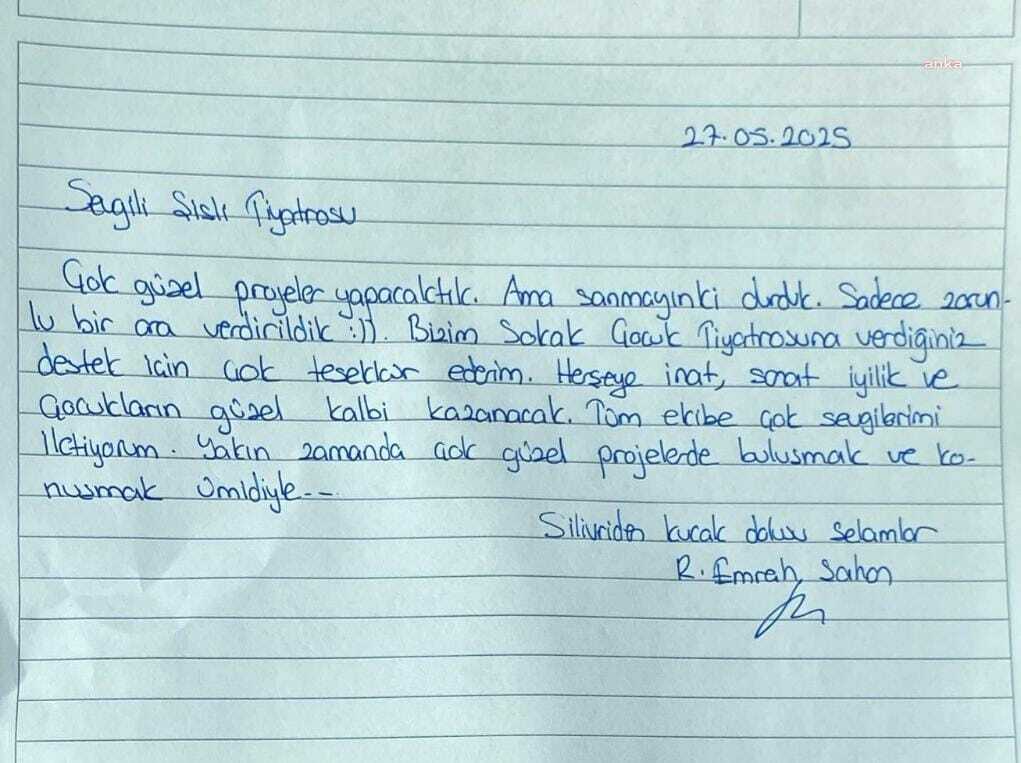 anka
27.05.2025
Sevgili Şişli Tiyatrosu
Çok güzel projeler yapacaktık. Ama sanmayınki durduk. Sadece zorun-
lu bir ara verdirildik :)). Bizim Sokak Çocuk Tiyatrosuna verdiğiniz
destek için çok teşekkür ederim. Herşeye inat, sanat iyilik ve
çocukların güzel kalbi kazanacak. Tüm ekibe çok sevgilerimi
iletiyorum. Yakın zamanda çok güzel projelerde buluşmak ve ko-
nuşmak ümidiyle---
Silivriden kucak dolusu selamlar
R. Emrah Şahan